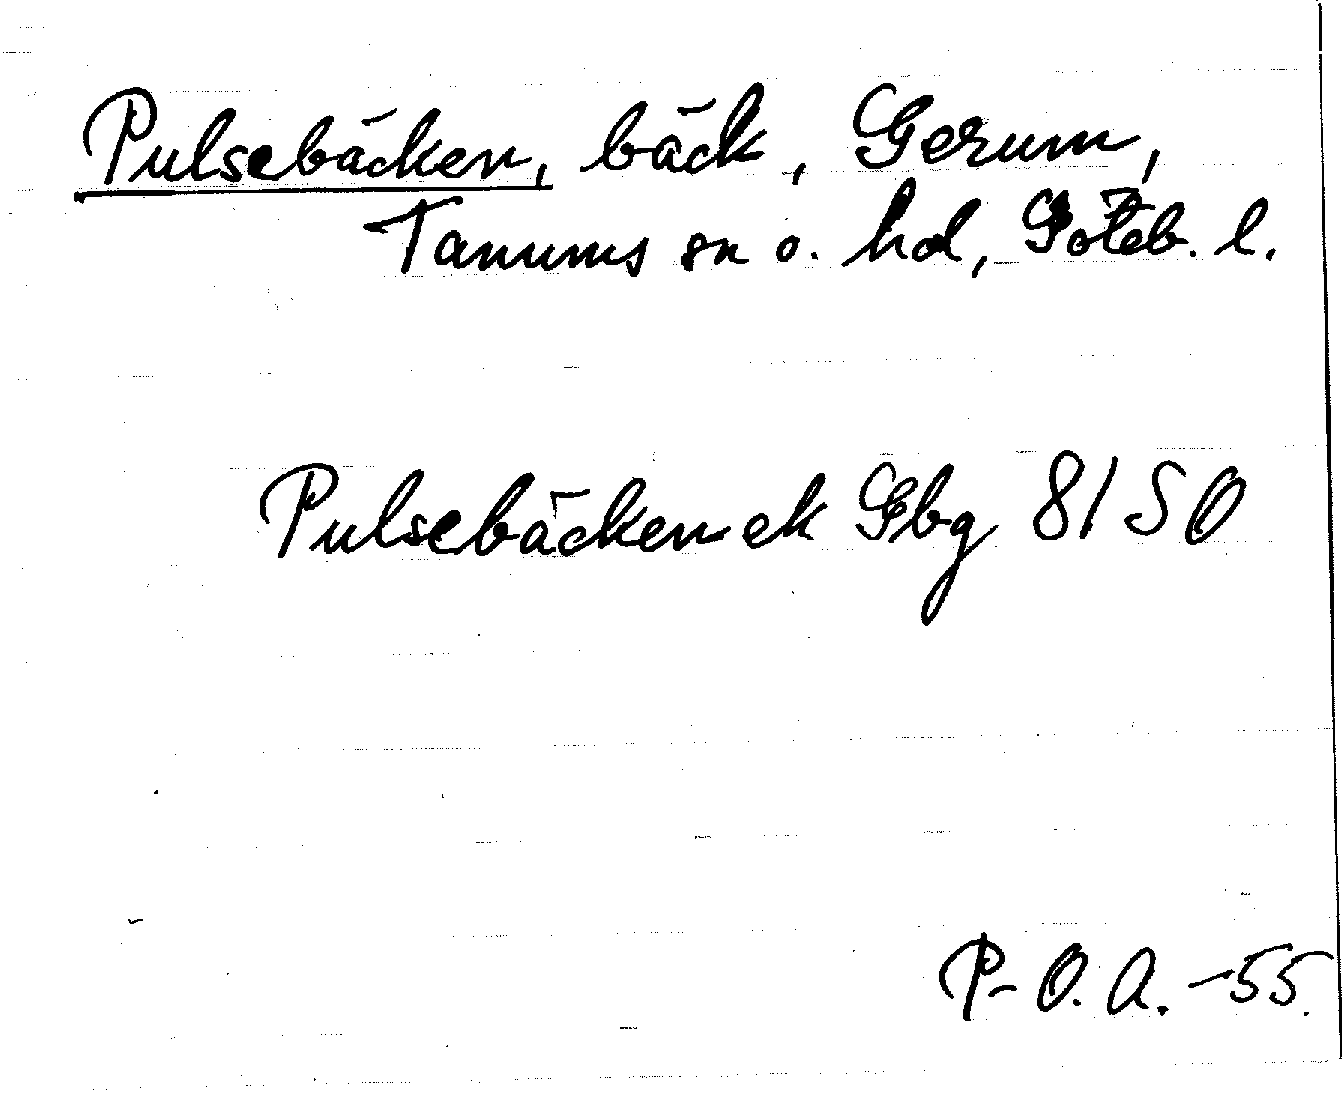 Pulsebäcken, bäck, Gerum,
Tanums sn o. hd, Göteb. l.
Pulsebäcken ek Gbg 8/50
P-O.A. -55.